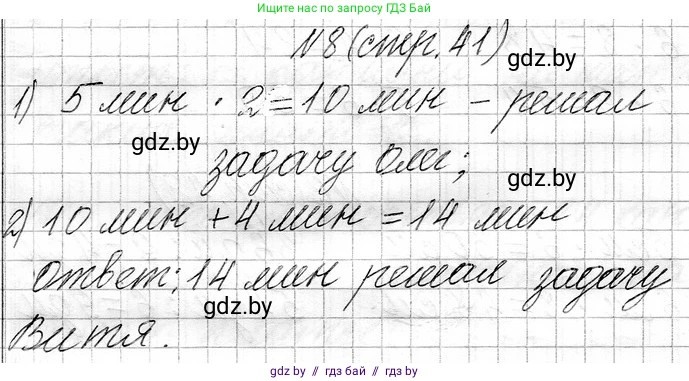 Ищите нас по запросу ГДЗ Бай
№8 (стр. 41)
gdz.by
1) 5 мин · 2 = 10 мин – решал
gdz.by
задачу Олег;
gdz.by
2) 10 мин + 4 мин = 14 мин
ответ: 14 мин решал задачу
gdz.by
Витя.
gdz.by // гдз бай // gdz.by